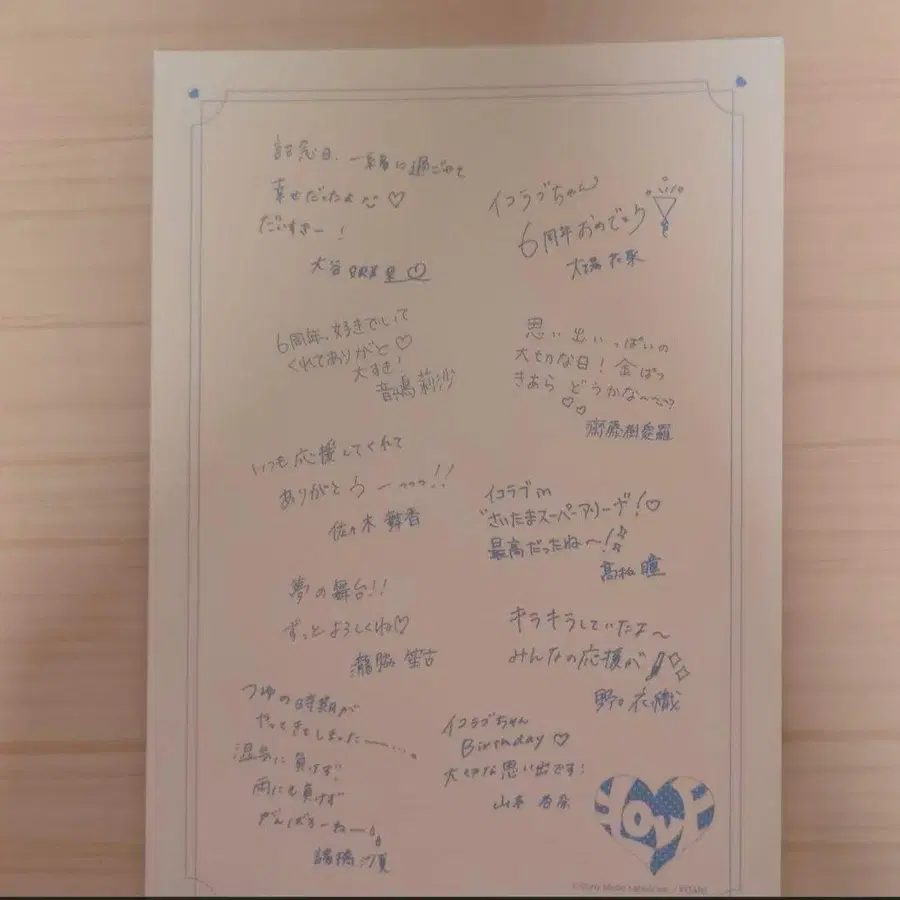 記念日、一緒に過ごせて
幸せだったよ♡
だいすきー!
大谷映美里♡
6周年、好きでいて
くれてありがと♡
大すき!
音嶋莉沙
いつも応援してくれて
ありがとうーっっっ!!
佐々木舞香
夢の舞台!!
ずっとよろしくね♡
瀧脇笙古
つゆの時期が
やってきてしまったー…。
湿気に負けず、
雨にも負けず
がんばろーねー!
諸橋沙夏
イコラブちゃん
6周年おめでとう
大場花菜
思い出いっぱいの
大切な日!金ぱつ
きあら どうかな〜??
♡♡
齋藤樹愛羅
イコラブ in
さいたまスーパーアリーナ!♡
最高だったね〜!
髙松瞳
キラキラしていたよ〜
みんなの応援が
野口衣織
イコラブちゃん
Birthday♡
大切な思い出です!
山本杏奈
=LOVE